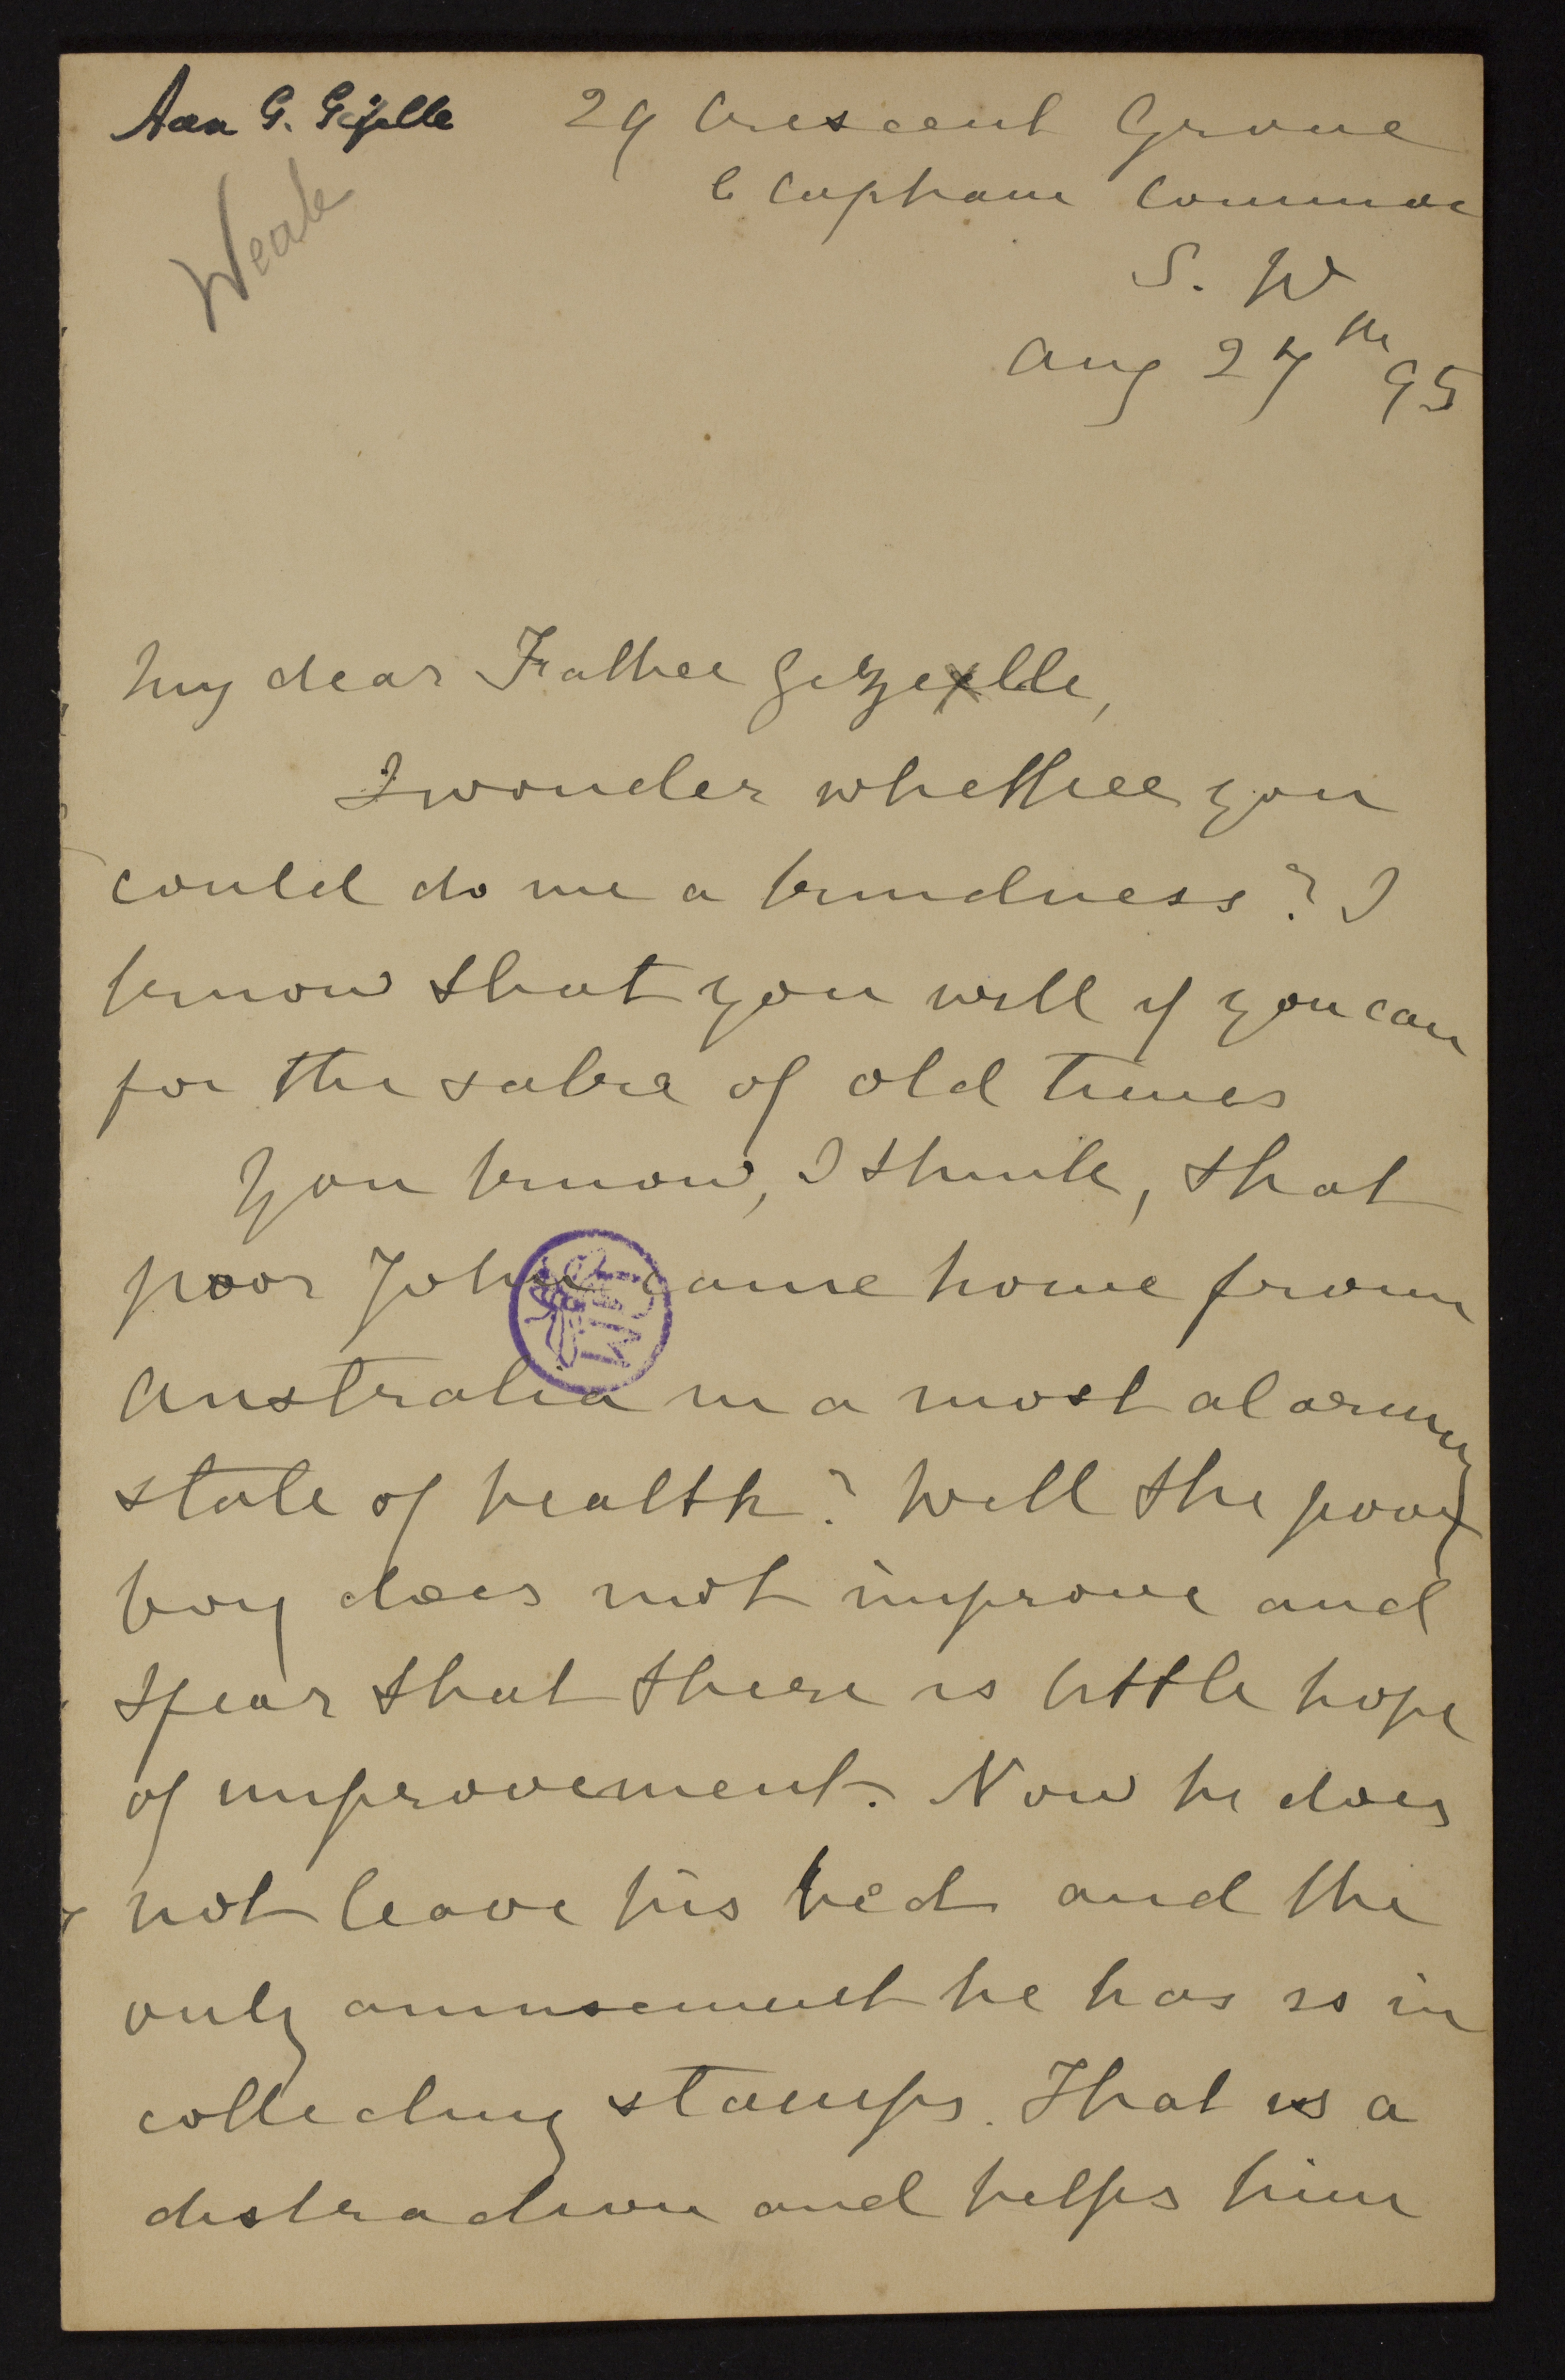 Aan G. Gezelle
Weale
29 Crescent Grove
Clapham Common
S. W
Aug 27th 95
My dear Father Gezelle,
I wonder whether you
could do me a kindness? I
know that you will if you can
for the sake of old times
You know, I think, that
poor John came home from
Australia in a most alarming
state of health? Well the poor
boy does not improve and
I fear that there is little hope
of improvement. Now he does
not leave his bed and the
only amusement he has is in
collecting stamps. That is a
distraction and helps him